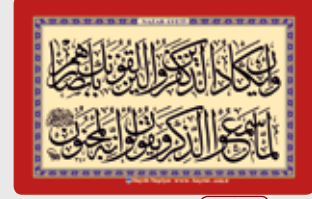 NAZAR AYETİ
وإن يكاد الذين كفروا ليزلقونك بأبصارهم
لما سمعوا الذكر ويقولون إنه لمجنون